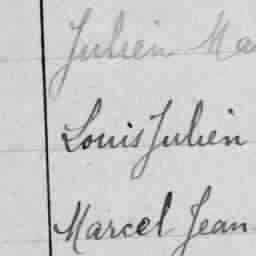 Julien Ma
Louis Julien
Marcel Jean